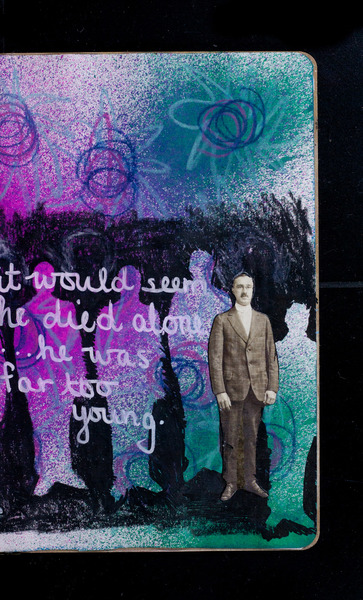 it would seem
he died alone
...he was
far too
young.